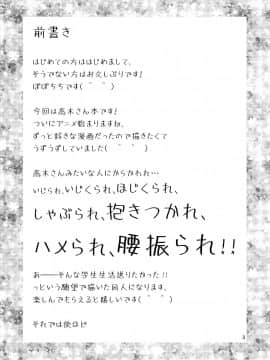 前書き
はじめての方ははじめまして、
そうでない方はお久しぶりです!
ぽぽちちです(＾ ＾)
今回は高木さん本です!
ついにアニメ始まりますね、
ずっと好きな漫画だったので描きたくて
うずうずしていました(＾ ＾)
高木さんみたいな人にからかわれ…
いじられ、いじくられ、ほじくられ、
しゃぶられ、抱きつかれ、
ハメられ、腰振られ!!
あーーそんな学生生活送りたかった!!
っという願望で描いた同人になります、
楽しんでもらえると嬉しいです(＾ ＾)
それでは後ほど
3